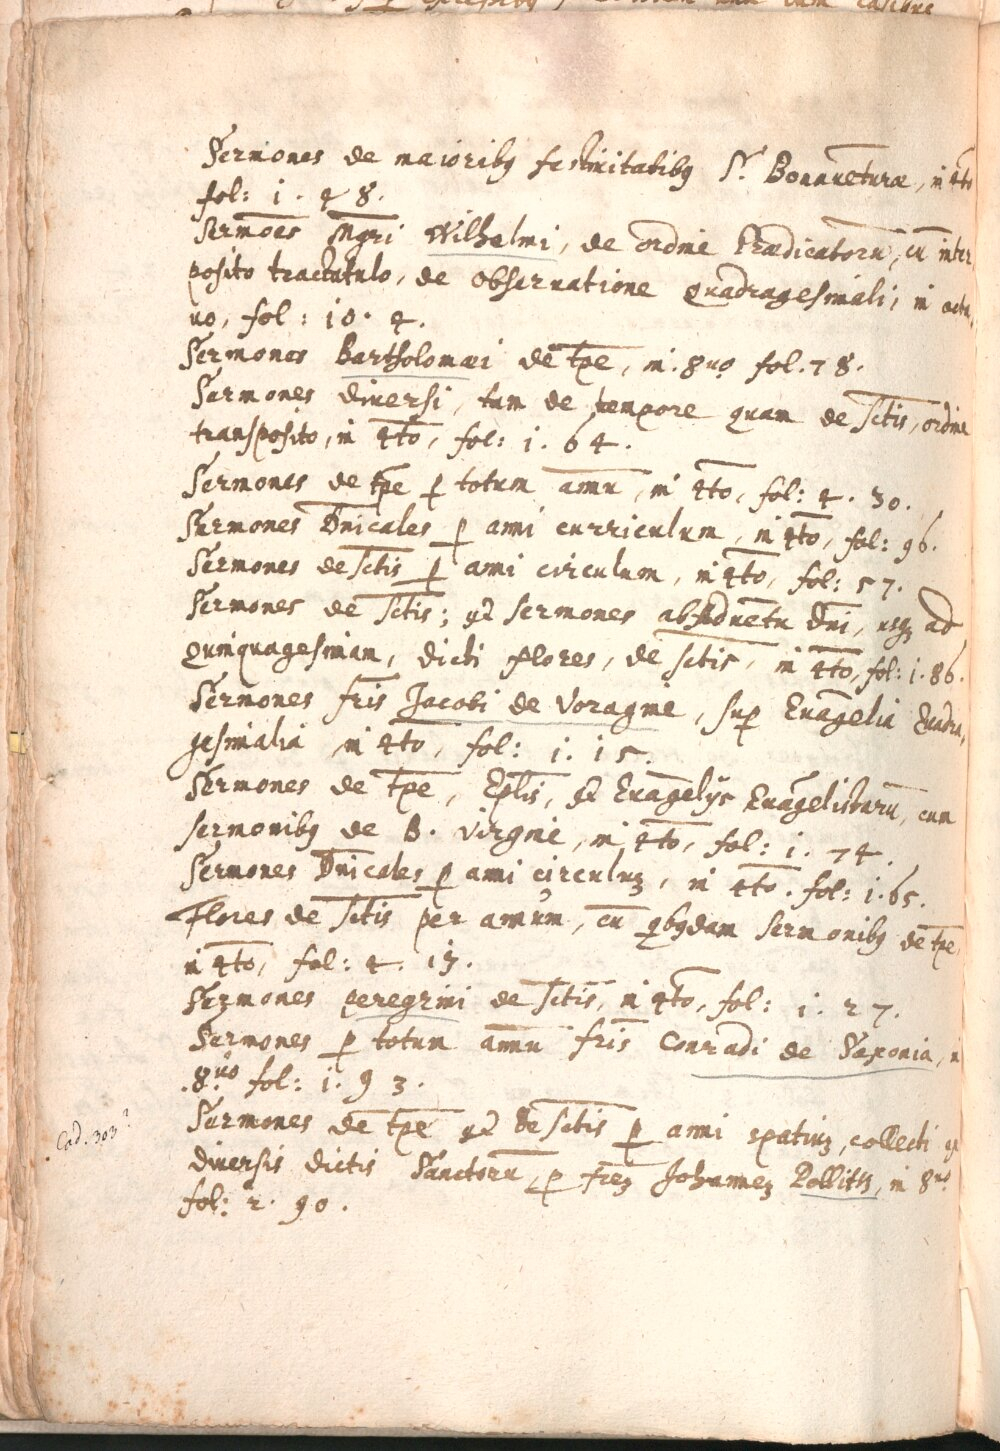 Sermones de maioribꝯ festiuitatibꝯ S. Bonauēturæ, in 4to
fol: 1. 48.
Sermōes Mḡri Wilhelmi, de ordīne Prædicatorū, cū inter
posito tractatulo, de obseruatione quadragesimali, in octa,
uo, fol: 10. 4.
Sermones Bartholomæi de tp̄e, in. 8uo fol. 78.
Sermones diuersi, tam de tempore quam de sc̄tis, ordine
transposito, in 4to, fol: 1. 64.
Sermones de tp̄e ꝑ totum annū, in 4to, fol: 4. 30.
Sermones Dn̄icales ꝑ anni curriculum, in 4to, fol: 96.
Sermones de sc̄tis ꝑ anni circulum, in 4to, fol: 57.
Sermones de sc̄tis; et sermones ab Aduētu Dn̄i, usqꝫ ad
quinquagesimam, dicti flores, de sc̄tis, in 4to, fol: 1. 86.
Sermones fr̄is Jacobi de Voragine, suꝑ Euāgelia Quadra,
gesimalia in 4to, fol: 1. 15.
Sermones de tp̄e, Ep̄lis, et Euāgelijs Euāgelistarū, cum
sermonibꝯ de B. Virgine, in 4to, fol: 1. 74.
Sermones Dn̄icales ꝑ anni circuluꝫ, in 4to. fol: 1. 65.
Flores de sc̄tis per annum, cū qbꝯdam sermonibꝯ de tp̄e,
in 4to, fol: 4. 19.
Sermones peregrini de sc̄tis, in 4to, fol: 1. 27.
Sermones ꝑ totum annū fr̄is Conradi de Saxonia, in
8uo fol: 1. 93.
Cad. 303?
Sermones de tp̄e et de sc̄tis ꝑ anni spatiuꝫ, collecti
diuersis dictis Sanctorū, ꝑ fr̄eꝫ Johanneꝫ in 8uo
fol: 2. 90.